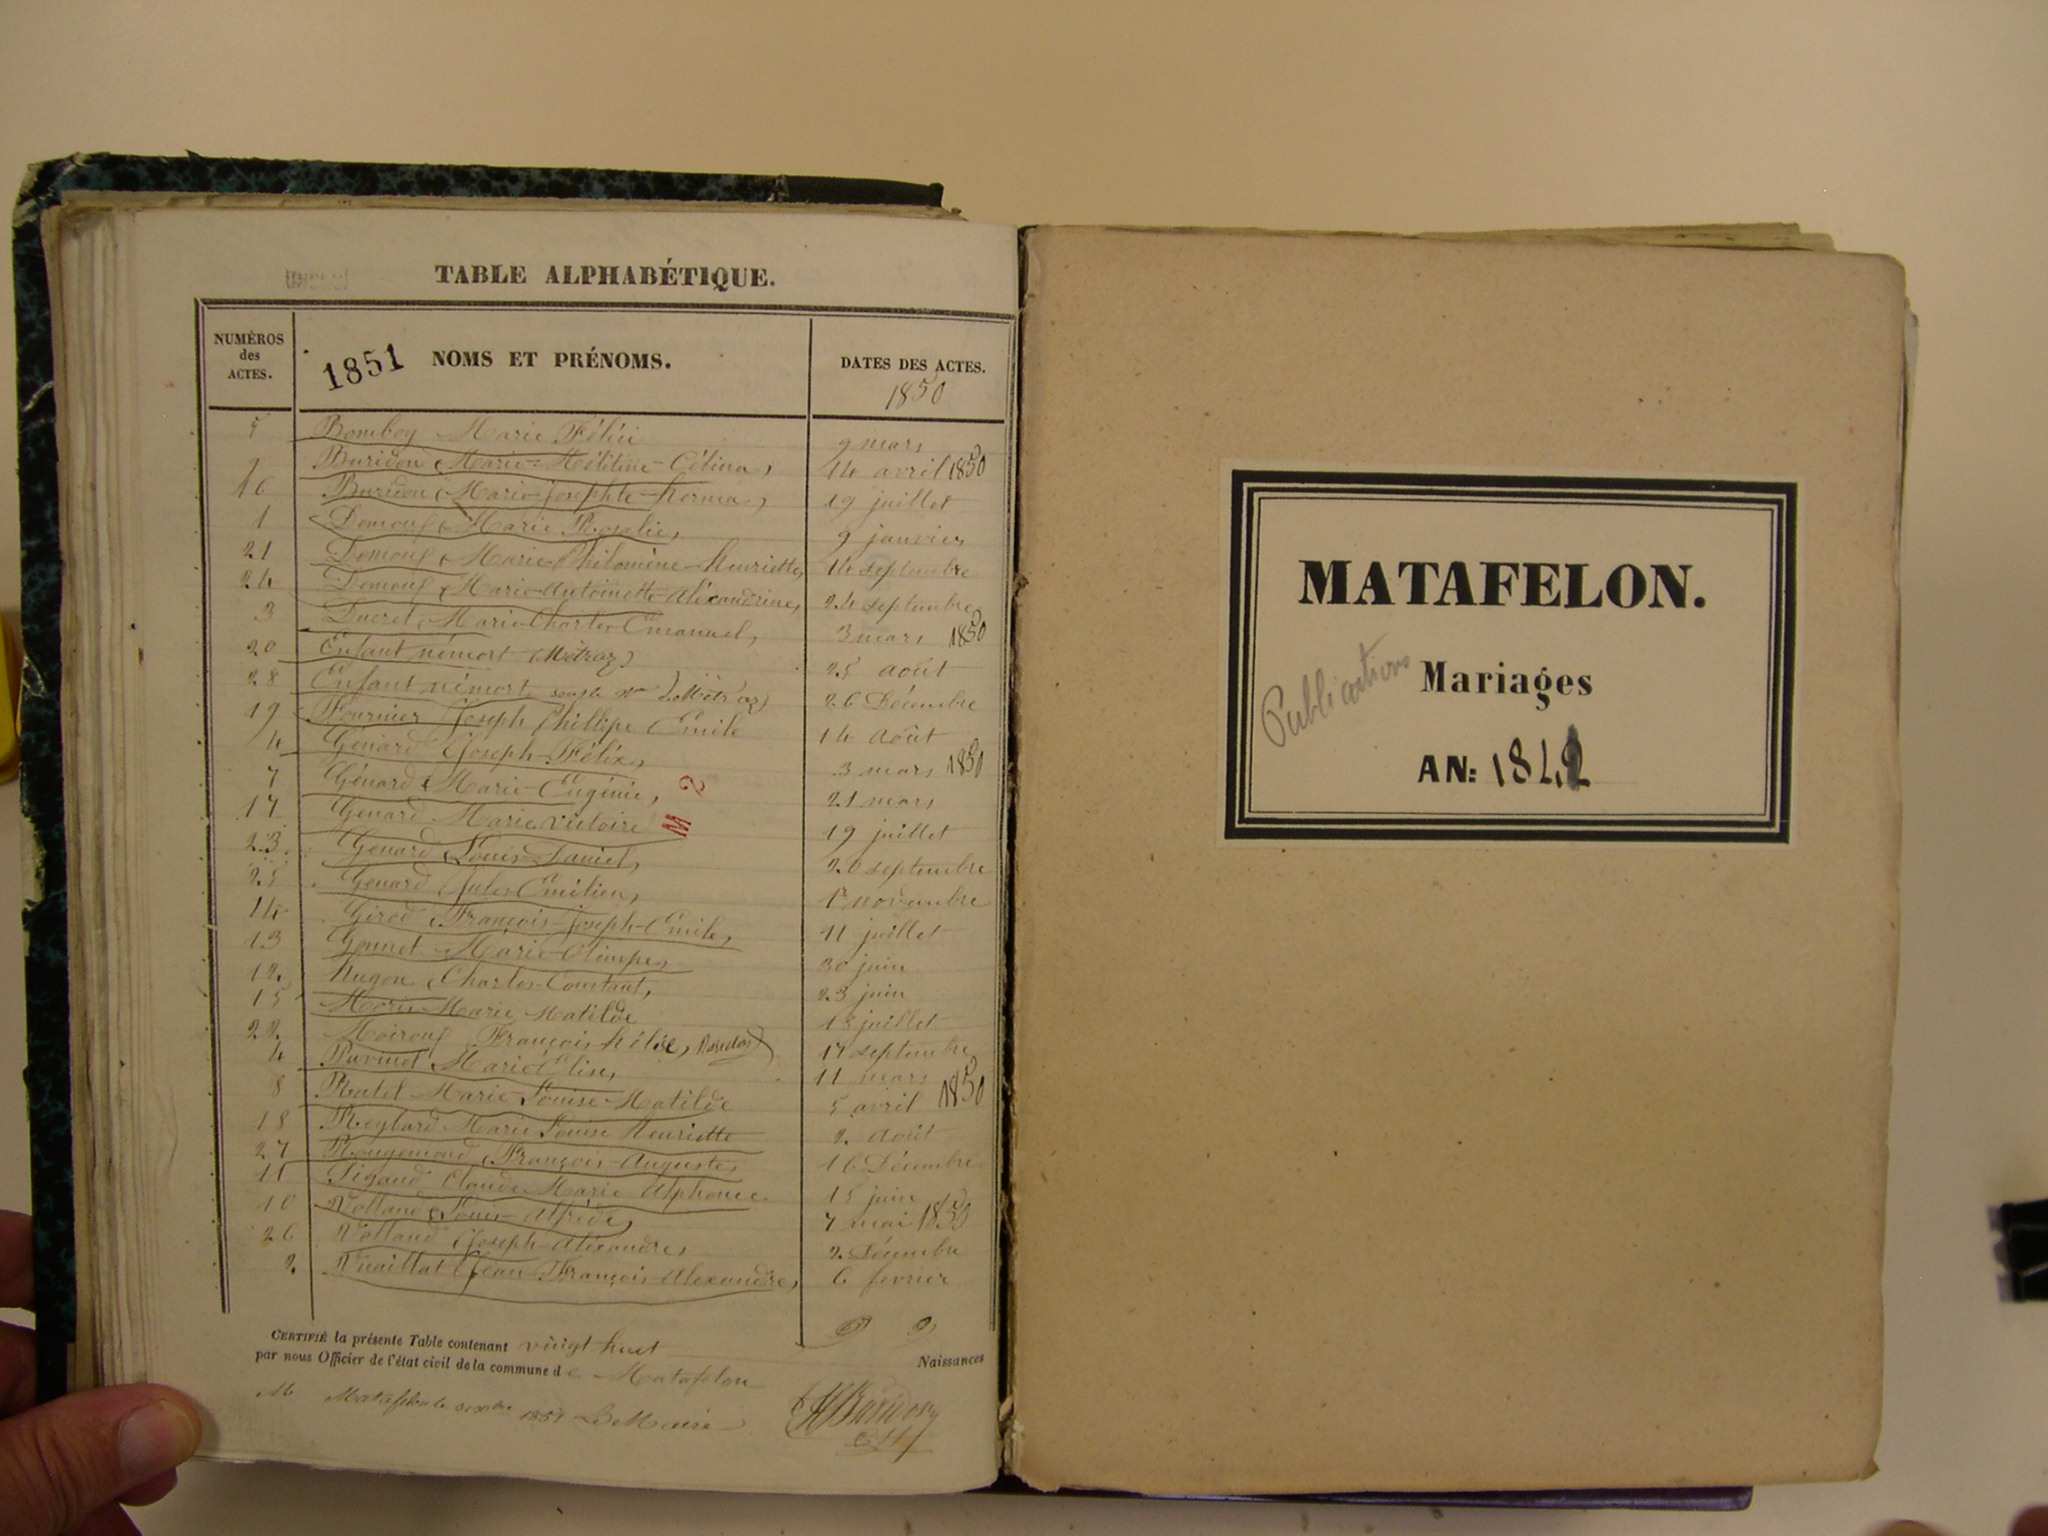 TABLE ALPHABÉTIQUE.
NUMÉROS des ACTES.
1851 NOMS ET PRÉNOMS.
DATES DES ACTES.
1850
5 Bomboy Marie Félicie 9 mars
9 Buridon Marie- -Célina, 14 avril 1850
16 Buridon Marie-Josephte- 19 juillet
1 Marie Rosalie, 9 janvier
21 Marie Philomène-Henriette, 14 septembre
24 Marie-Antoinette-Alexandrine, 24 septembre
3 Ducret, Marie-Charles-Emanuel, 3 mars 1850
20 Enfant némort (Métraz) 25 août
28 Enfant némort (Métraz) 26 Décembre
19 Fournier Joseph Phillipe Emile 14 août
4 Génard Joseph-Félix, 3 mars 1850
7 Génard Marie-Eugénie, 21 mars
17 Génard Marie victoire M 2 19 juillet
23 Génard Louis-Daniel, 20 septembre
25 Génard Jules-Emilien, novembre
14 Girod François-Joseph-Emile, 11 juillet
13 Gonnet Marie-Olimpe, 30 juin
12 Hugon Charles-Constant, 23 juin
15 Marie Matilde juillet
22 François 17 septembre
4 Marie Élise, 11 mars
8 Ratel Marie-Louise-Matilde 5 avril 1850
18 Marie Louise Henriette 2 août
27 Rougemond François-Auguste, 16 Décembre
11 Sigaud Claude Marie Alphonse 15 juin
10 Volland Louis-Alfrède, 7 mai 1850
26 Volland Joseph-Alexandre, 2 Décembre
2 Vuaillat Jean François-Alexandre, 6 fevrier
CERTIFIÉ la présente Table contenant vingt huit Naissances
par nous Officier de l'état civil de la commune de Matafelon
Matafelon le 1851 Le Maire
MATAFELON.
Publications
Mariages
AN: 1842